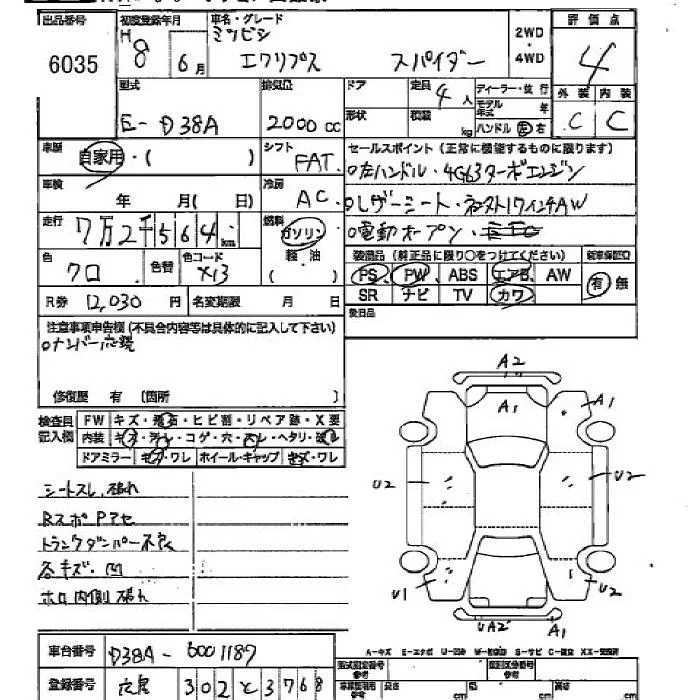 出品番号 初度登録年月 車名・グレード 評価点
6035 H 8 6月 ミツビシ エクリプス スパイダー 2WD・4WD 4
型式 排気量 ドア 定員 4人 ディーラー・並行 外装 内装
E-D38A 2000cc 形状 積載 kg モデル年式 年 C C
ハンドル 左 右
車歴 自家用・( ) シフト FAT セールスポイント(正常に機能するものに限ります)
○左ハンドル・4G63ターボエンジン
車検 年 月(日) 冷房 AC ○レザーシート・ 17インチAW
走行 7万2千564km 燃料 ガソリン 軽油 ( ) ○電動オープン・
色 クロ 色替 色コード X13 装備品(純正品に限り○をつけてください) 新車保証書
PS PW ABS エアB AW 有 無
SR ナビ TV カワ
R券 12,030円 名変期限 月 日 後日品
注意事項申告欄(不具合内容等は具体的に記入して下さい)
○ナンバー応談
修復歴 有 〔箇所 〕
検査員記入欄 FW キズ・飛石・ヒビ割・リペア跡・X要
内装 キズ・汚レ・コゲ・穴・スレ・ヘタリ・破レ
ドアミラー キズ・ワレ ホイール・キャップ キズ・ワレ
シートスレ, 破れ
RスポPアセ
トランクダンパー不良
各キズ・凹
ホロ内側 破れ
A2
A1 A1
U2 U2
U1 U2
UA2 A1
A-キズ E-エクボ U-凹み W-補修跡 S-サビ C-腐食 XX-交換済
車台番号 D38A-0001187 型式指定番号 参考 類別区分番号 参考
登録番号 302 と 3768 長さ cm 幅 cm 高さ cm